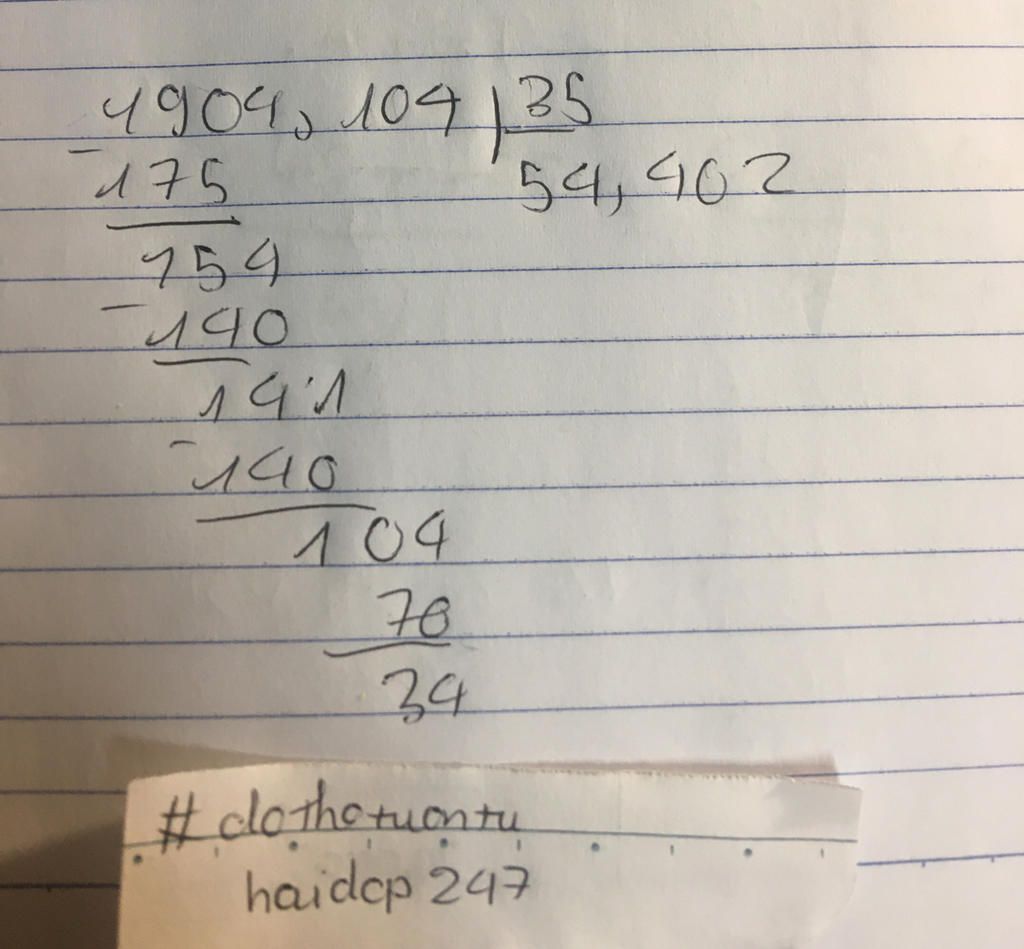 1904,104 | 35
- 175 54,402
154
- 140
141
- 140
104
70
34
#dothotuontu
haidcp 247